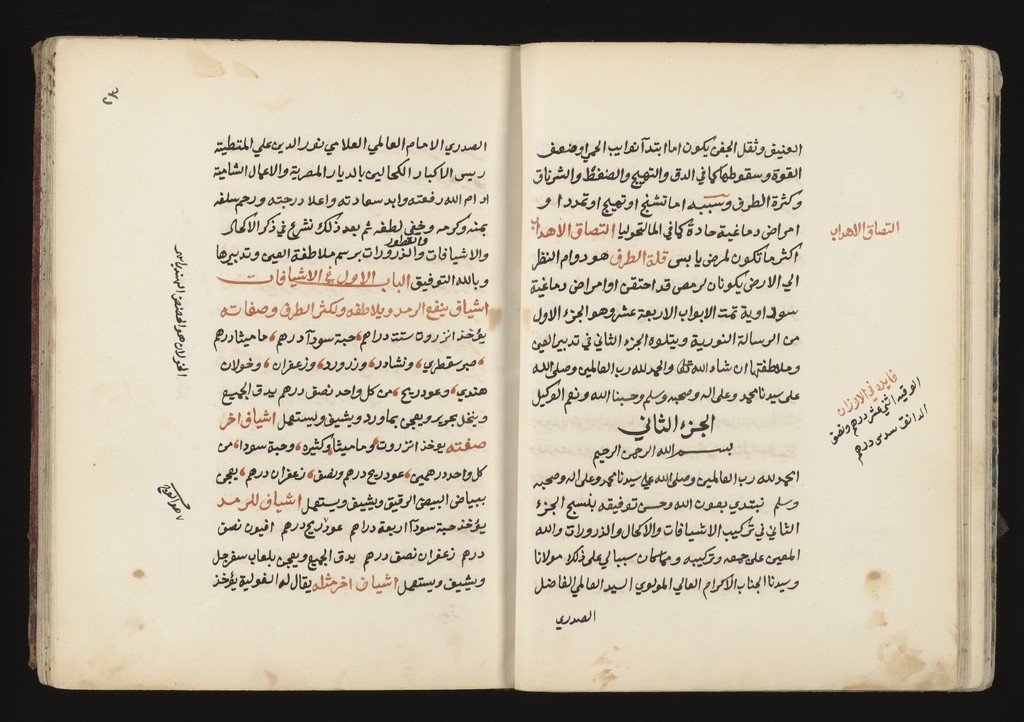 العنيق وثقل الجفن يكون اما ابتدآ نوايب الحمي او ضعف
القوة وسقوطها كما في الدق والتهيج والضغط والشرناق
وكثرة الطرف وسببه اما تشنج او تهيج او تمدد او
امراض دماغية حادة كما في المالنخوليا التصاق الاهداب
اكثر ما تكون لمرض يابس قلة الطرف هو دوام النظر
الي الارض يكونان لرمص قد احتقن او امراض دماغية
سوداوية تمت الابواب الاربعة عشر وهو الجزء الاول
من الرسالة النورية ويتلوه الجزء الثاني في تدبير العين
وملاطفتها ان شاء الله والحمد لله رب العالمين وصلى الله
على سيدنا محمد وعلى اله وصحبه وسلم وحسبنا الله ونعم الوكيل
الجزء الثاني
بسم الله الرحمن الرحيم
الحمد لله رب العالمين وصلى الله علي سيدنا محمد وعلى اله وصحبه
وسلم نبتدي بعون الله وحسن توفيقه بنسخ الجزء
الثاني في تركيب الاشيافات والاكحال والذرورات والله
المعين على جمعه وتركيبه وما كان سببا لي على ذلك مولانا
وسيدنا الجناب الاكرام العالي المولوي السيد العالم الفاضل
الصدري
التصاق الاهداب
فايدة في الاوزان
الوقيه اثني عشر درهم ونصف
الدانق سدس درهم
الصدري الامام العالمي العلامي نور الدين علي المتطبته
رييس الاكبار الكحالين بالديار المصرية والاعمال الشامية
ادام الله رفعته وابد سعادته واعلا درجته ورحم سلفه
بمنه وكرمه وخفي لطفه ثم بعد ذلك نشرع في ذكر الاكحال
والقطور
والاشيافات والذرورات برسم ملاطفة العين وتدبيرها
وبالله التوفيق الباب الاول في الاشيافات
اشياف ينفع الرمد ويلاطفه ولكثر الطرف وصفاته
يؤخذ انزروت ستة دراهم حبة سودآ درهم ماميثا درهم
صبر سقطري ونشادر وزرورد وزعفران وخولان
هندي وعود ريح من كل واحد نصف درهم يدق الجميع
وينخل بحرير ويعجن بماورد ويشيف ويستعمل اشياف اخر
صفته يوخذ انزروت وماميثا وكثيره وحبة سودا من
كل واحد درهمين عود ريح درهم ونصف زعفران درهم يعجن
ببياض البيض الرقيق ويشيف ويستعمل اشياف للرمد
يؤخذ حبة سودآ اربعة دراهم عود ريح درهم افيون نصف
درهم زعفران نصف درهم يدق الجميع ويعجن بلعاب سفرجل
ويشيف ويستعمل اشياف اخر مثله يقال له الفولية يؤخذ
الخولان هو الحضض الهندي